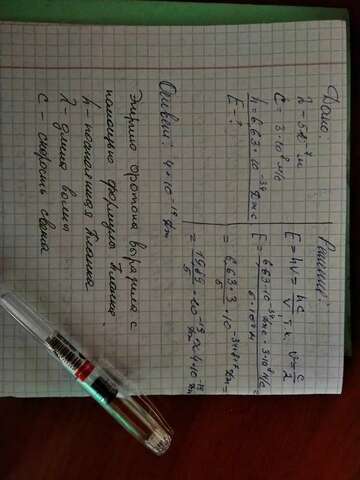 Дано:
λ = 5·10⁻⁷ м
C = 3·10⁸ м/с
h = 6,63·10⁻³⁴ Дж·с
E - ?
Решение:
E = hν = hc/λ, т.к. ν = c/λ
E = 6,63·10⁻³⁴ Дж·с · 3·10⁸ м/с / 5·10⁻⁷ м =
= 6,63·3/5 · 10⁻³⁴⁺⁸⁺⁷ Дж =
= 19,89/5 · 10⁻¹⁹ Дж ≈ 4·10⁻¹⁹ Дж
Ответ: 4×10⁻¹⁹ Дж
Энергию фотона выразила с
помощью формулы Планка.
h - постоянная Планка
λ - длина волны
c - скорость света